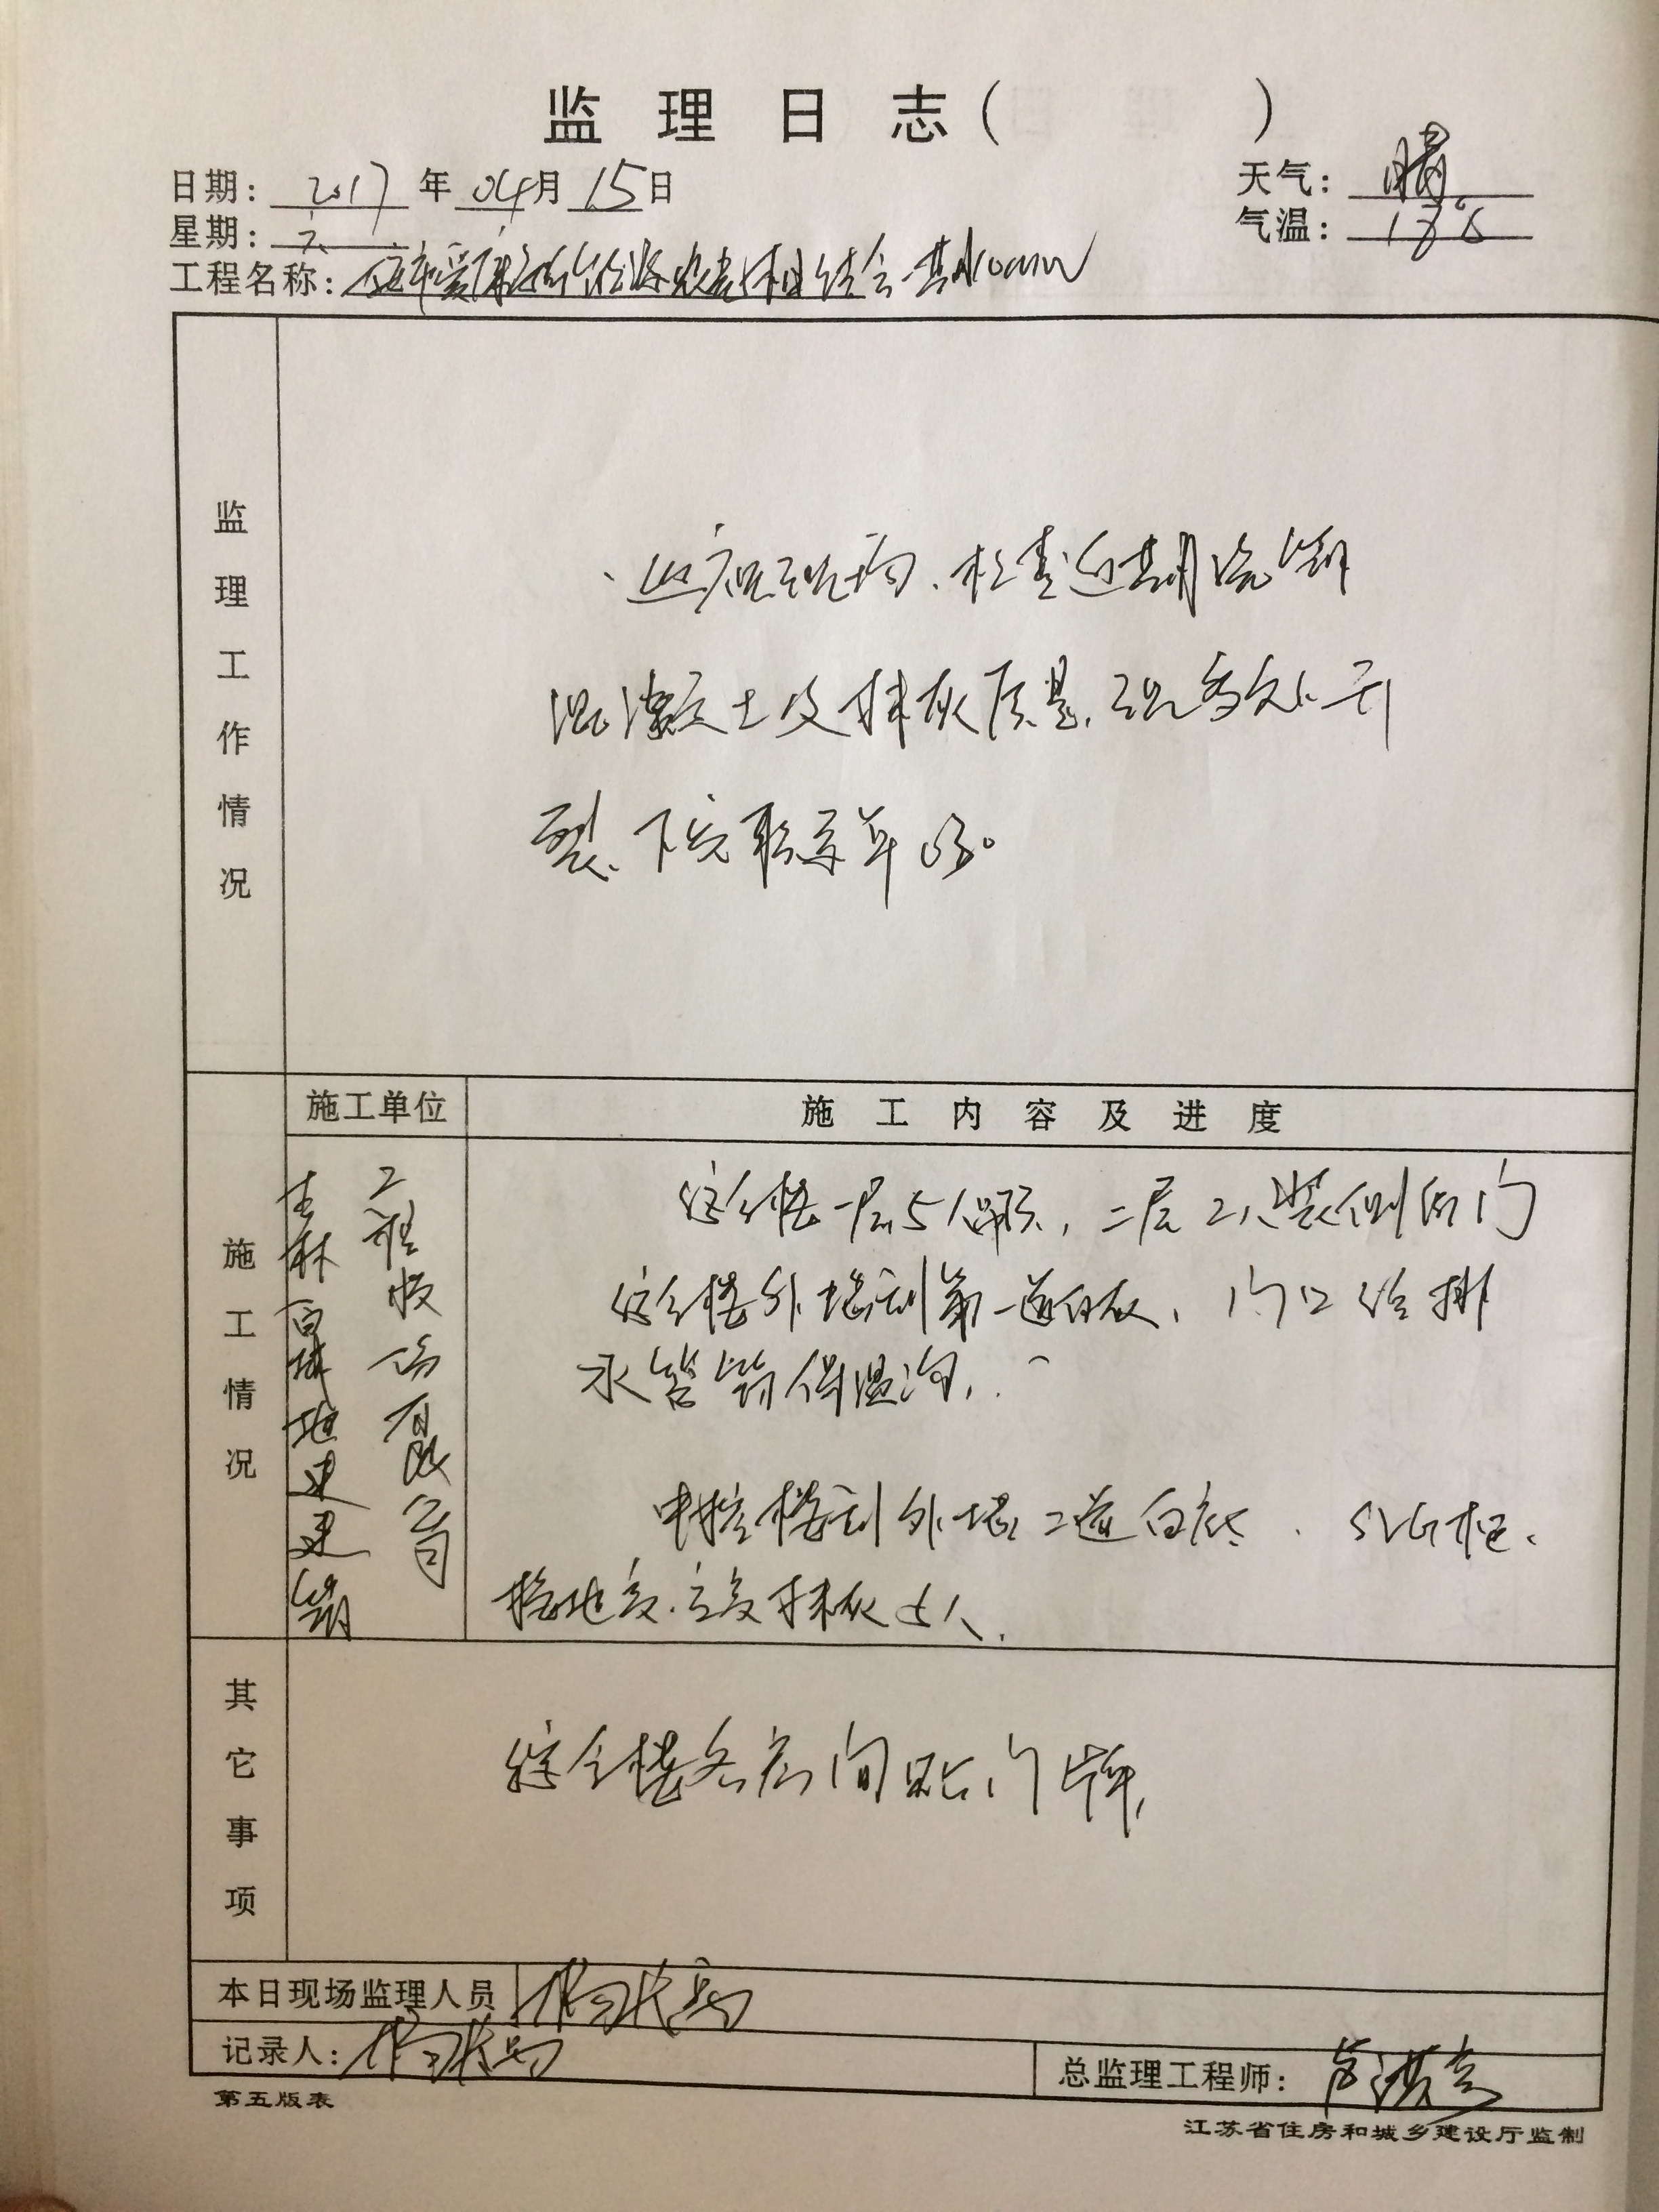 监理日志（ ）
日期：2017年04月15日
天气：晴
星期：六
气温：18℃
工程名称：
监理工作情况
巡视现场、检查近期浇筑
混凝土及抹灰质量，现多处开
裂、下发联系单
施工单位
施工内容及进度
施工情况
吉林百城地建建筑
工程股份有限公司
综合楼一层5人吊顶，二层2人装侧所门
综合楼外墙刮第一道白灰，门口给排
水管 保温沟，
中控楼刮外墙二道白 、SVG柜、
接地变、主变抹灰 人，
其它事项
综合楼各房间贴门牌，
本日现场监理人员 杨
记录人：杨
总监理工程师：
第五版表
江苏省住房和城乡建设厅监制